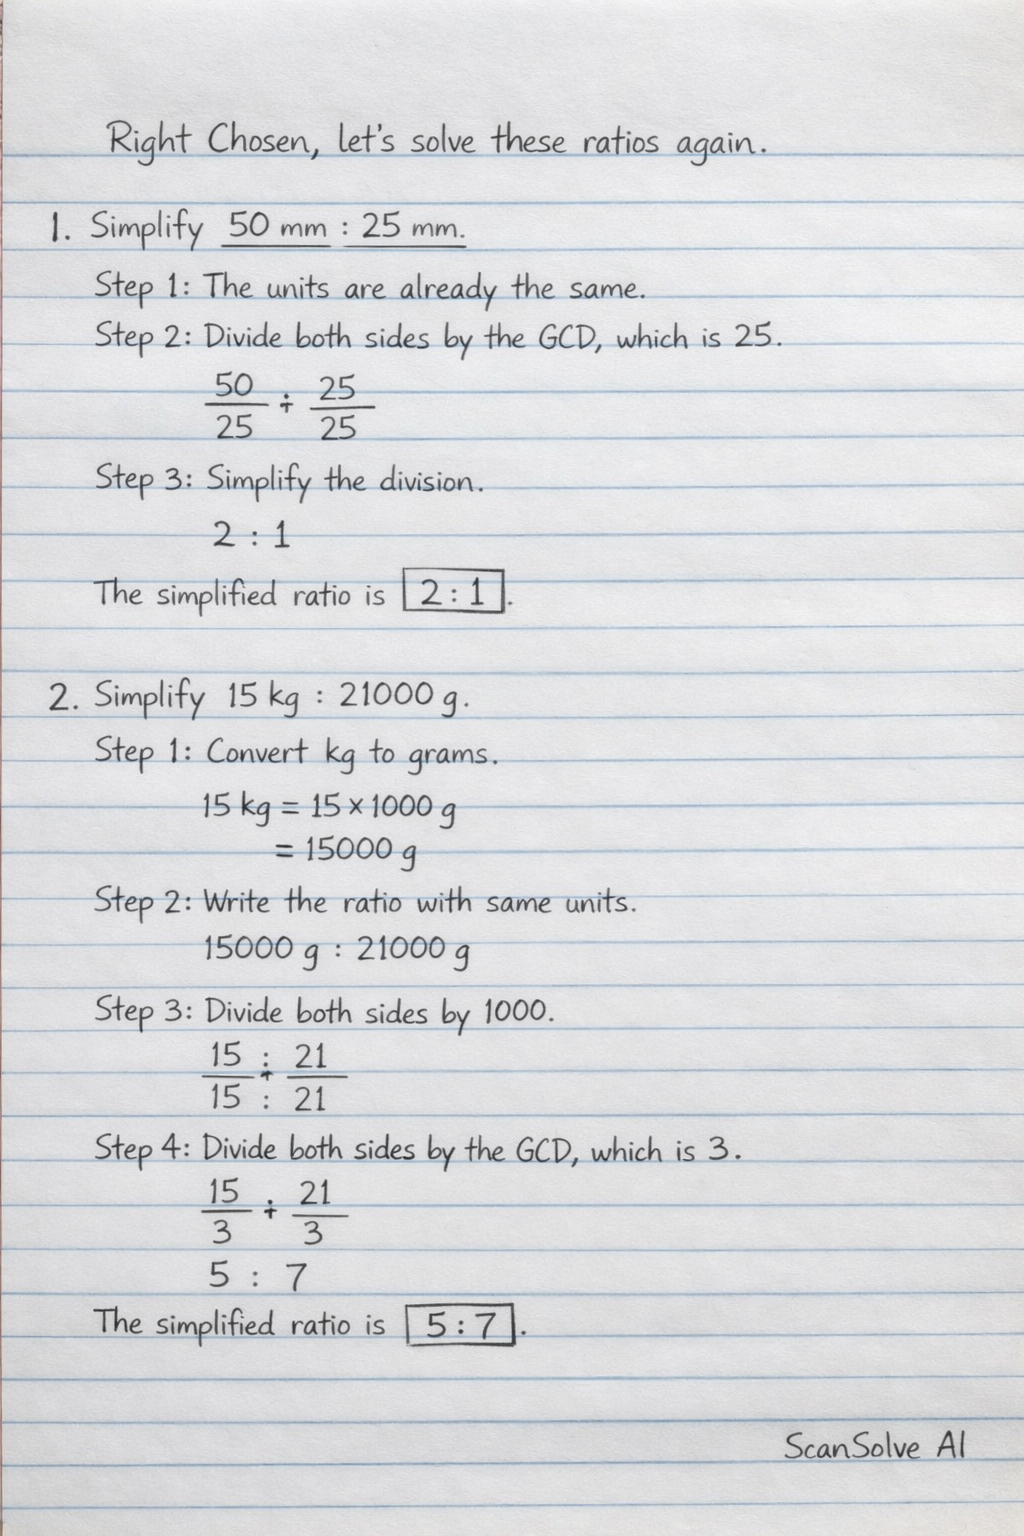 Right Chosen, let's solve these ratios again.
1. Simplify 50 mm : 25 mm.
Step 1: The units are already the same.
Step 2: Divide both sides by the GCD, which is 25.
50/25 ÷ 25/25
Step 3: Simplify the division.
2 : 1
The simplified ratio is 2 : 1.
2. Simplify 15 kg : 21000 g.
Step 1: Convert kg to grams.
15 kg = 15 × 1000 g
= 15000 g
Step 2: Write the ratio with same units.
15000 g : 21000 g
Step 3: Divide both sides by 1000.
15 : 21
15 : 21
Step 4: Divide both sides by the GCD, which is 3.
15/3 ÷ 21/3
5 : 7
The simplified ratio is 5 : 7.
ScanSolve AI